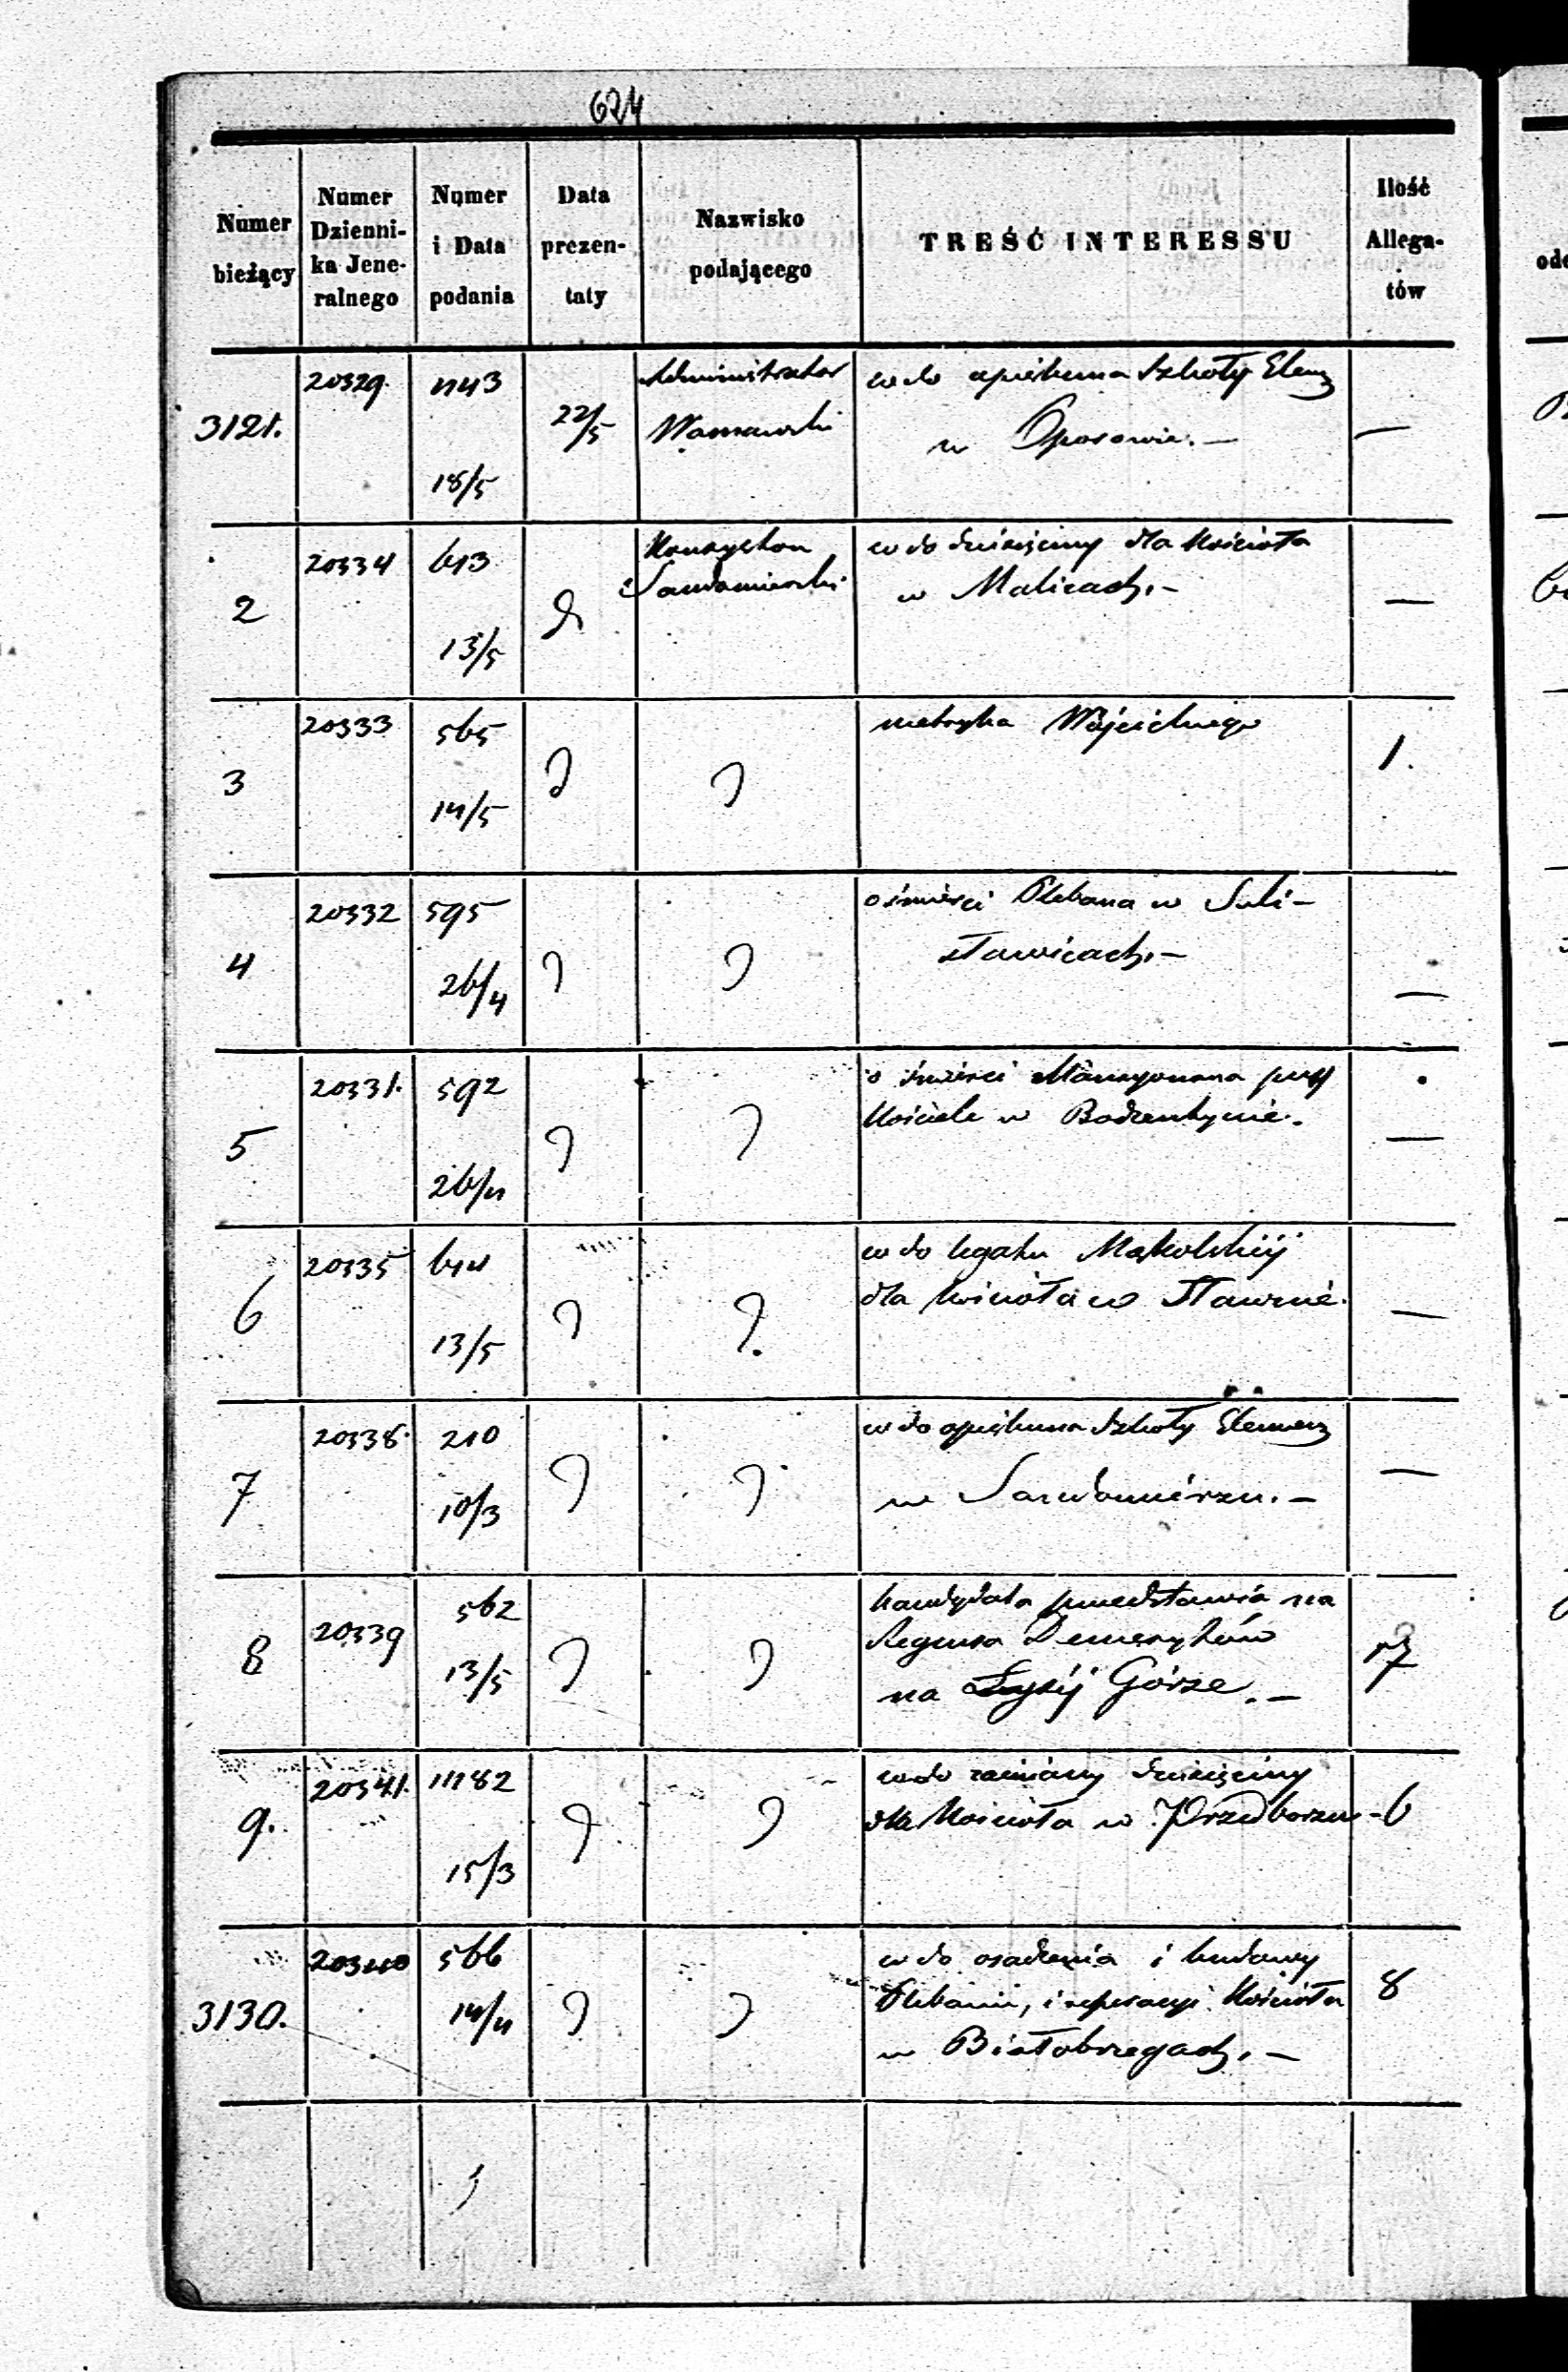 624
Numer bieżący | Numer Dzienni-ka Jene-ralnego | Numer i Data podania | Data prezen-taty | Nazwisko podającego | TREŚĆ INTERESSU | Ilość Allega-tów
3121. | 20329. | 1143 | 22/5 | Administrator | w do opiekuna Szkoły Elem
18/5 | Warszawski | w Oporowie. — | —
2 | 20334 | 613 | Konsystorz | w do dziesięciny dla Kościoła
13/5 | Sandomierski | w Malicach. — | —
3 | 20333 | 565 | metryka Wojcielnego | 1.
14/5
4 | 20332 | 595 | o śmierci Plebana w Suli-
26/4 | sławicach. — | —
5 | 20331. | 592 | o śmierci Mansyonarza przy
26/4 | Kościele w Bodzentynie. | —
6 | 20335 | 614 | w do legatu Mąkolskiij
13/5 | dla kościoła w Sławnie. | —
7 | 20338. | 210 | w do opiekuna Szkoły Elemen
10/3 | w Sandomierzu. — | —
8 | 20339 | 562 | kandydata przedstawia na
13/5 | Regensa Demerytów
na Łysiij Górze. —
9. | 20341. | 1182 | w do zamiany dziesięciny
15/3 | dla Kościoła w Przedborzu | -6
3130. | 20340 | 566 | w do osadzenia i budowy | 8
14/4 | Plebanii, i reperacyi Kościoła
w Białobrzegach. —